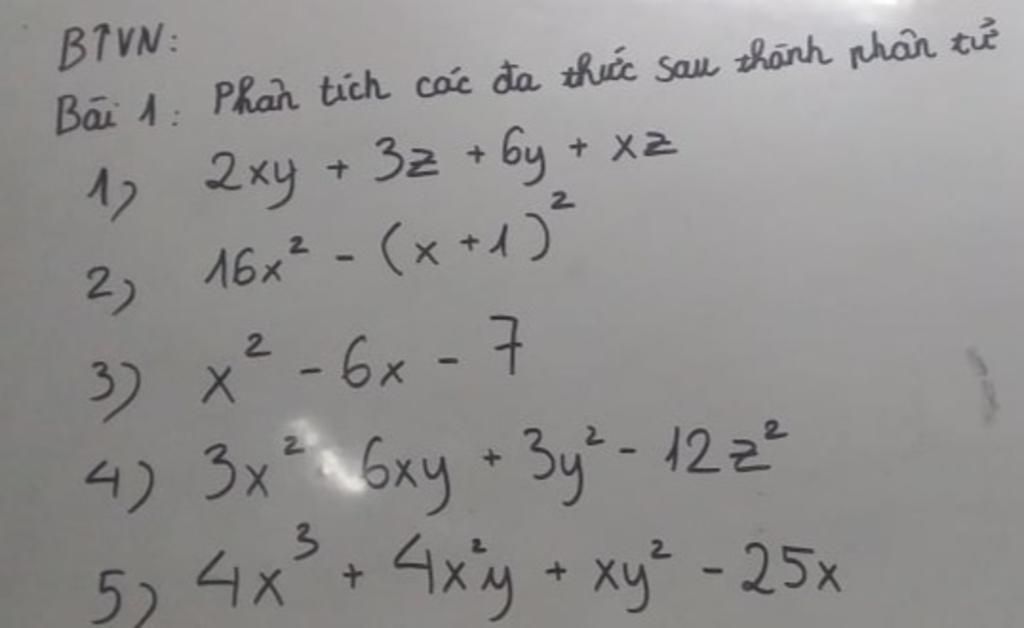 BTVN:
Bài 1: Phân tích các đa thức sau thành phân tử
1) 2xy + 3z + 6y + xz
2) 16x² - (x+1)²
3) x² - 6x - 7
4) 3x² 6xy + 3y² - 12z²
5) 4x³ + 4x²y + xy² - 25x